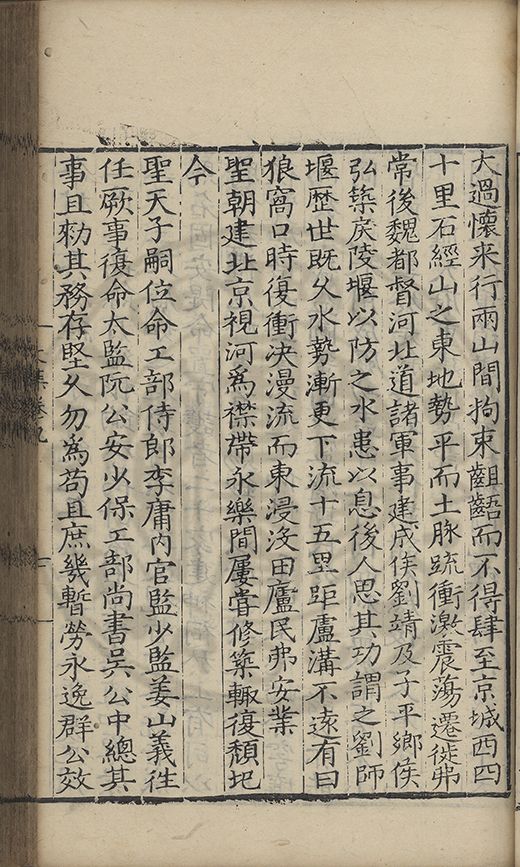 大過懷来行兩山間拘束齟齬而不得肆至京城西四
十里石經山之東地勢平而土脉疏衝激震蕩遷徙弗
常後魏都督河北道諸軍事建成侯劉靖及子平鄉侯
弘築戾陵堰以防之水患以息後人思其功謂之劉師
堰歷世既久水勢漸更下流十五里距盧溝不遠有曰
狼窩口時復衝决漫流而東浸没田廬民弗安業
聖朝建北京視河爲襟帶永樂間屢甞修築輙復頽圯
今
聖天子嗣位命工部侍郎李庸内官監少監姜山義徃
任厥事復命太監阮公安少保工部尚書吳公中總其
事且勑其務存堅久勿爲苟且庶幾暫勞永逸群公效
文集卷九